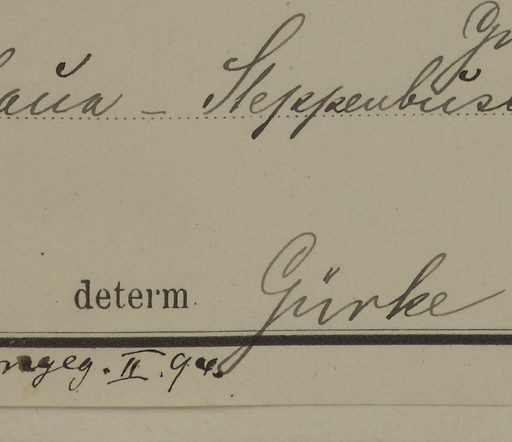 aua – Steppenbus
determ Gürke
ngeg. II. 94.